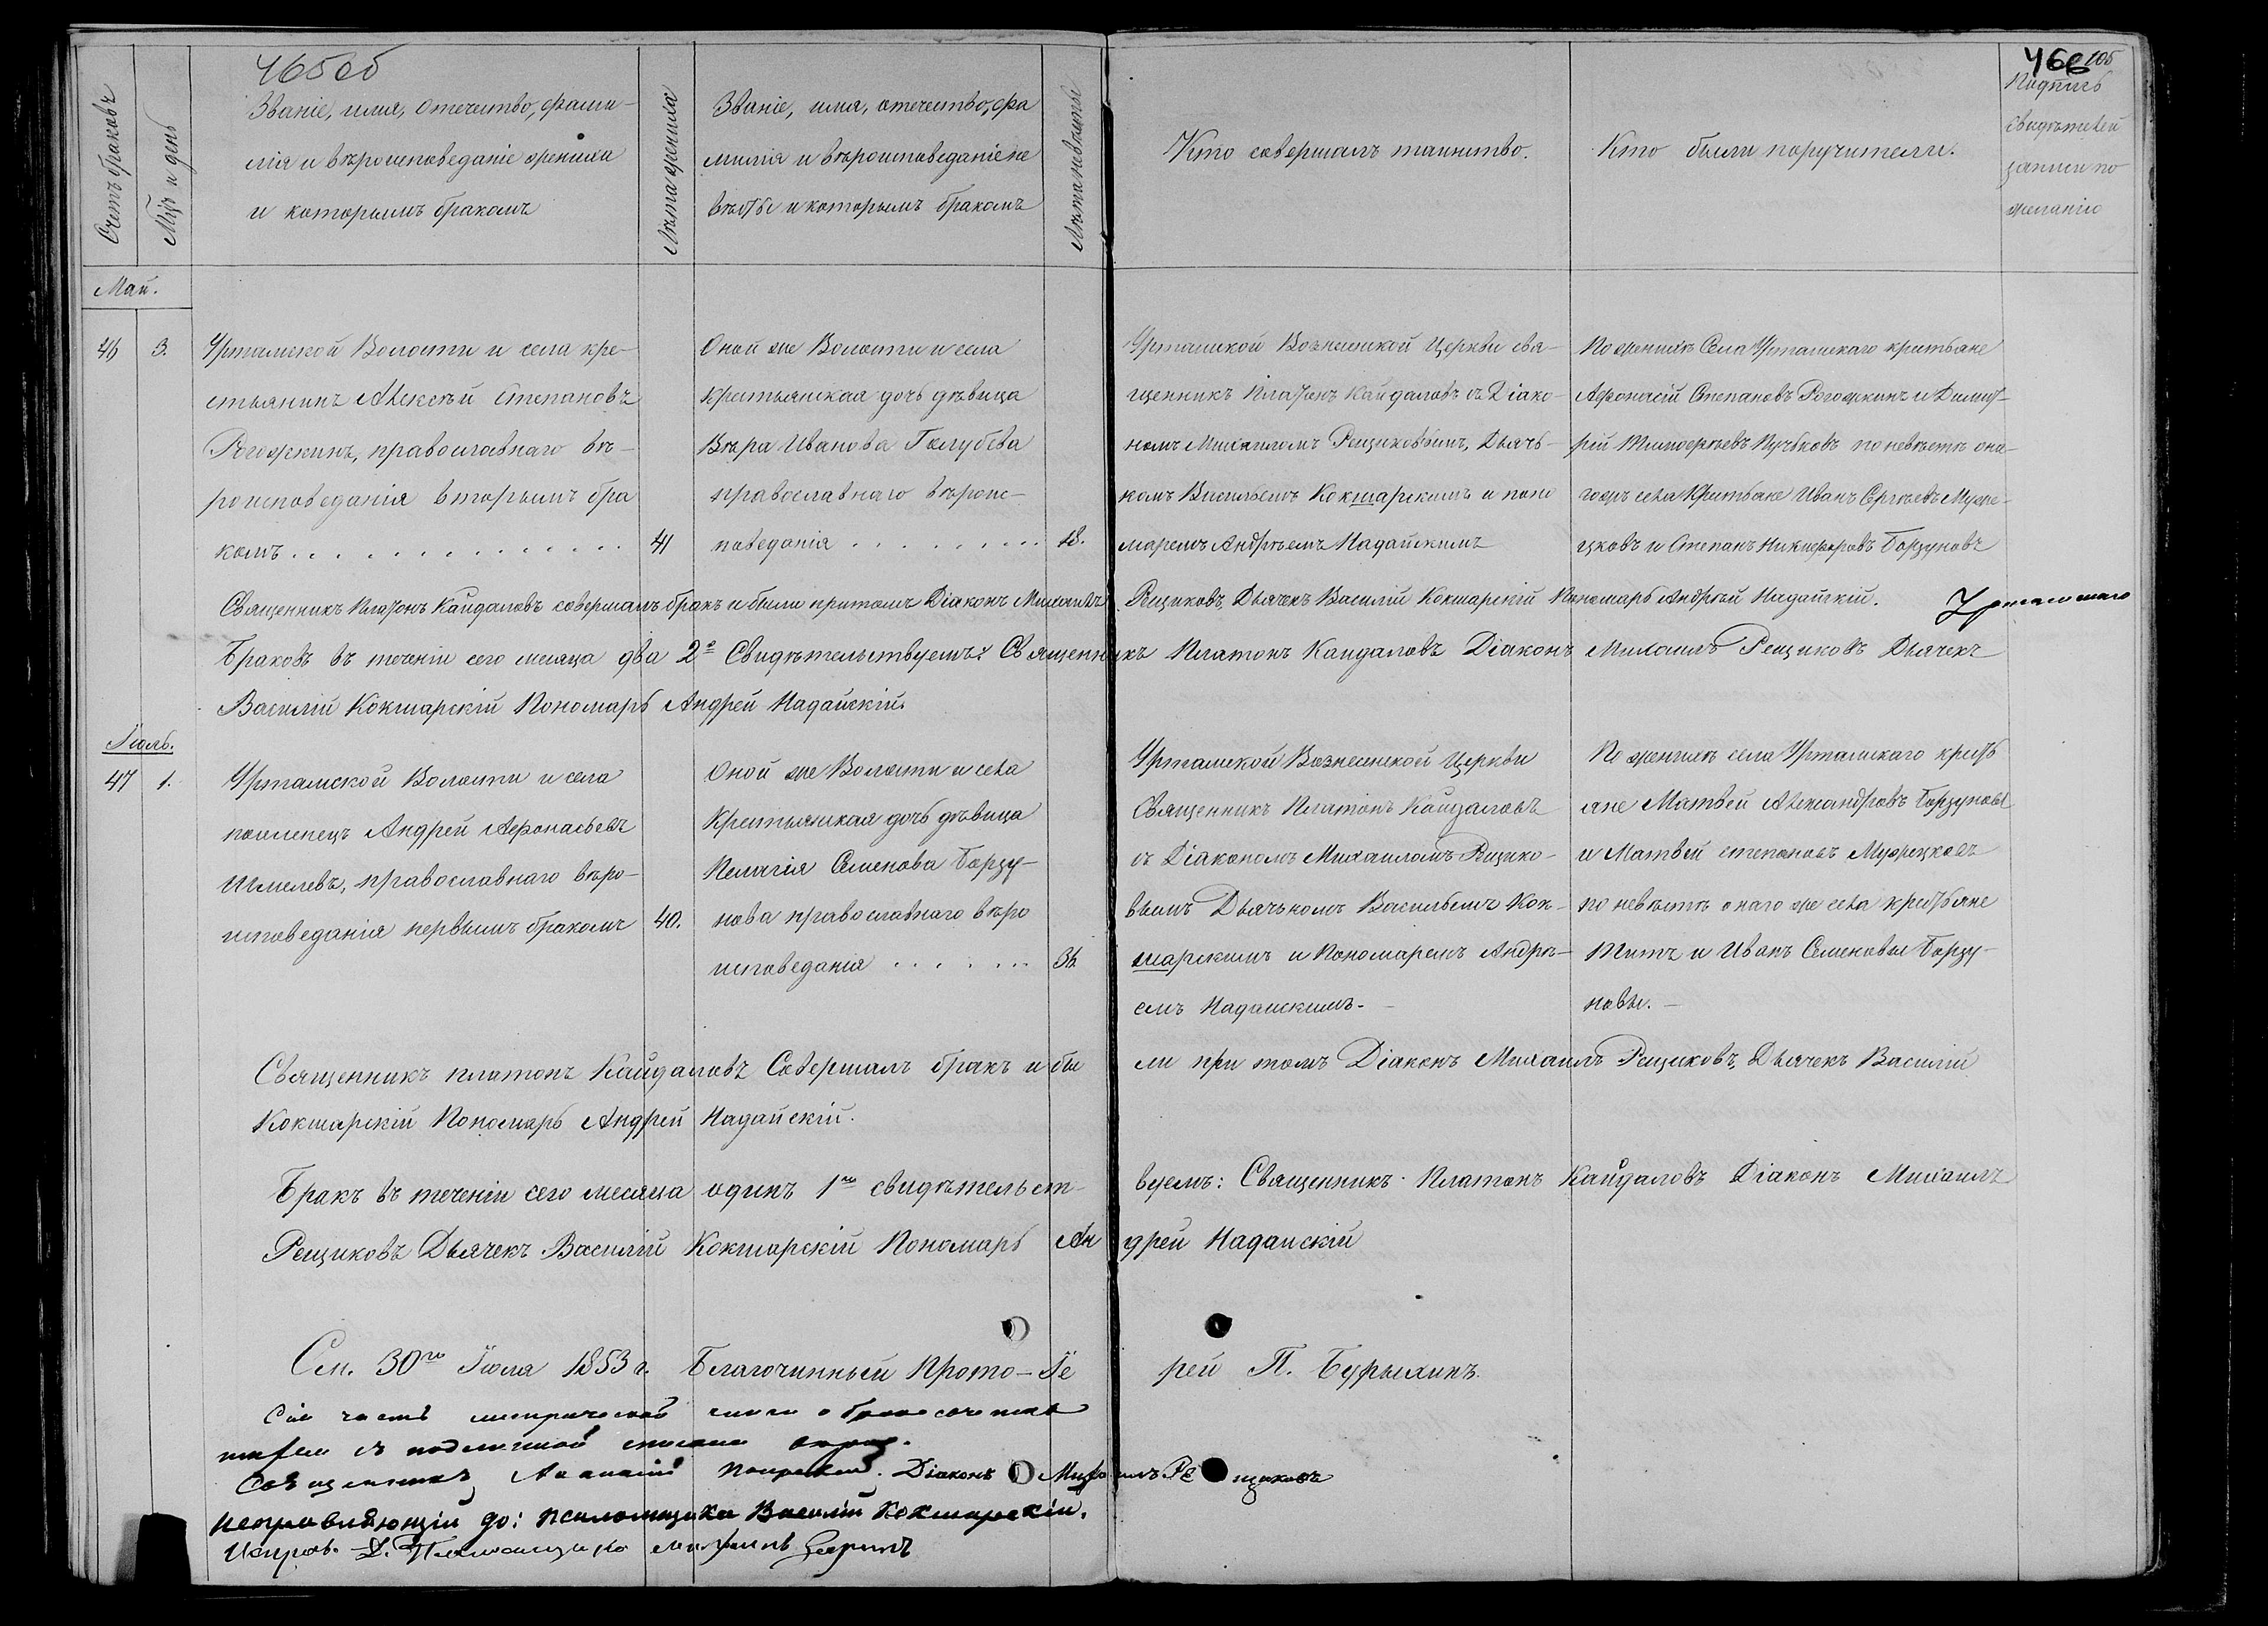 465об
466 105
Счетъ браковъ
Мцъ и день
Званіе, имя, отечество, фами-
лія и вѣроисповеданіе жениха
и которымъ бракомъ
Лѣта жениха
Званіе, имя, отечество, фа
милія и вѣроисповеданіе не
вѣсты и которымъ бракомъ
Лѣта невѣсты
Кто совершалъ таинство.
Кто были поручители.
Подпись
свидѣтелей
записи по
желанію
Май.
46
3.
Уртамской Волости и села кре-
стьянинъ Алексѣй Степановъ
Рогожкинъ, православнаго вѣ-
роисповеданія вторымъ бра
комъ . . . . . . . . . . . . . .
41
Оной же Волости и села
Крестьянская дочь дѣвица
Вѣра Иванова Голубева
православнаго вѣроис-
поведанія . . . . . . . . .
18.
Уртамской Вознесенской Церкви свя-
щенникъ Платонъ Кайдаловъ съ Діако-
номъ Михаиломъ Рещиковымъ, Дьячь-
комъ Васильемъ Кокшарскимъ и поно
маремъ Андрѣемъ Надайскимъ
По женихѣ Села Уртамскаго кристьяне
Афонасій Степановъ Рогожкинъ и Димит-
рій Тимофѣевъ Пучьковъ по невѣстѣ она-
гожъ села Кристьяне Иванъ Сергѣевъ Муже-
цковъ и Степанъ Никифоровъ Борзуновъ
Священникъ Платонъ Кайдаловъ совершалъ бракъ и были притомъ Діаконъ Михаилъ Рещиковъ, Дьячекъ Василій Кокшарскій Пономарь Андрѣй Надайскій.
Браковъ въ теченіи сего месяца два 2е Свидѣтельствуемъ: Священникъ Платонъ Кайдаловъ Діаконъ Михаилъ Рещиковъ Дьячекъ
Василій Кокшарскій Пономарь Андрей Надайскій.
Іюль.
47
1.
Уртамской Волости и села
поселенецъ Андрей Афонасьевъ
Шмелевъ, православнаго вѣро-
исповеданія первымъ бракомъ
40.
Оной же Волости и села
Крестьянская дочь дѣвица
Пелагія Семенова Борзу-
нова православнаго вѣро
исповеданія . . . . . .
36
Уртамской Вознесенской Церкви
Священникъ Платонъ Кайдаловъ
съ Діакономъ Михаиломъ Рещико-
вымъ Дьячькомъ Васильемъ Кок-
шарскимъ и Пономаремъ Андрѣ-
емъ Надайскимъ. -
По женихѣ села Уртамскаго кресть
яне Матвей Александровъ Борзуновъ
и Матвей степановъ Мужецковъ
по невѣстѣ онаго же села кристьяне
Титъ и Иванъ Семеновы Борзу-
новы. -
Священникъ платонъ Кайдаловъ Совершалъ бракъ и бы ли при томъ Діаконъ Михаилъ Рещиковъ, Дьячекъ Василій
Кокшарскій Пономарь Андрей Надайскій.
Бракъ въ теченіи сего месяца одинъ 1й свидѣтельст- вуемъ: Священникъ Платонъ Кайдаловъ Діаконъ Михаилъ
Рещиковъ Дьячекъ Василій Кокшарскій Пономарь Ан дрей Надайскій
30го Іюля 1853 г. Благочинный Прото-Іе рей П. Бурыхинъ.
Сія часть метрической книги о бракосочетав
съ подлинной
Священникъ Діаконъ Михаилъ Рещиковъ
исправляющій до: псаломщика Василій Кокшарскій.
Исправ. Д. Псаломщика